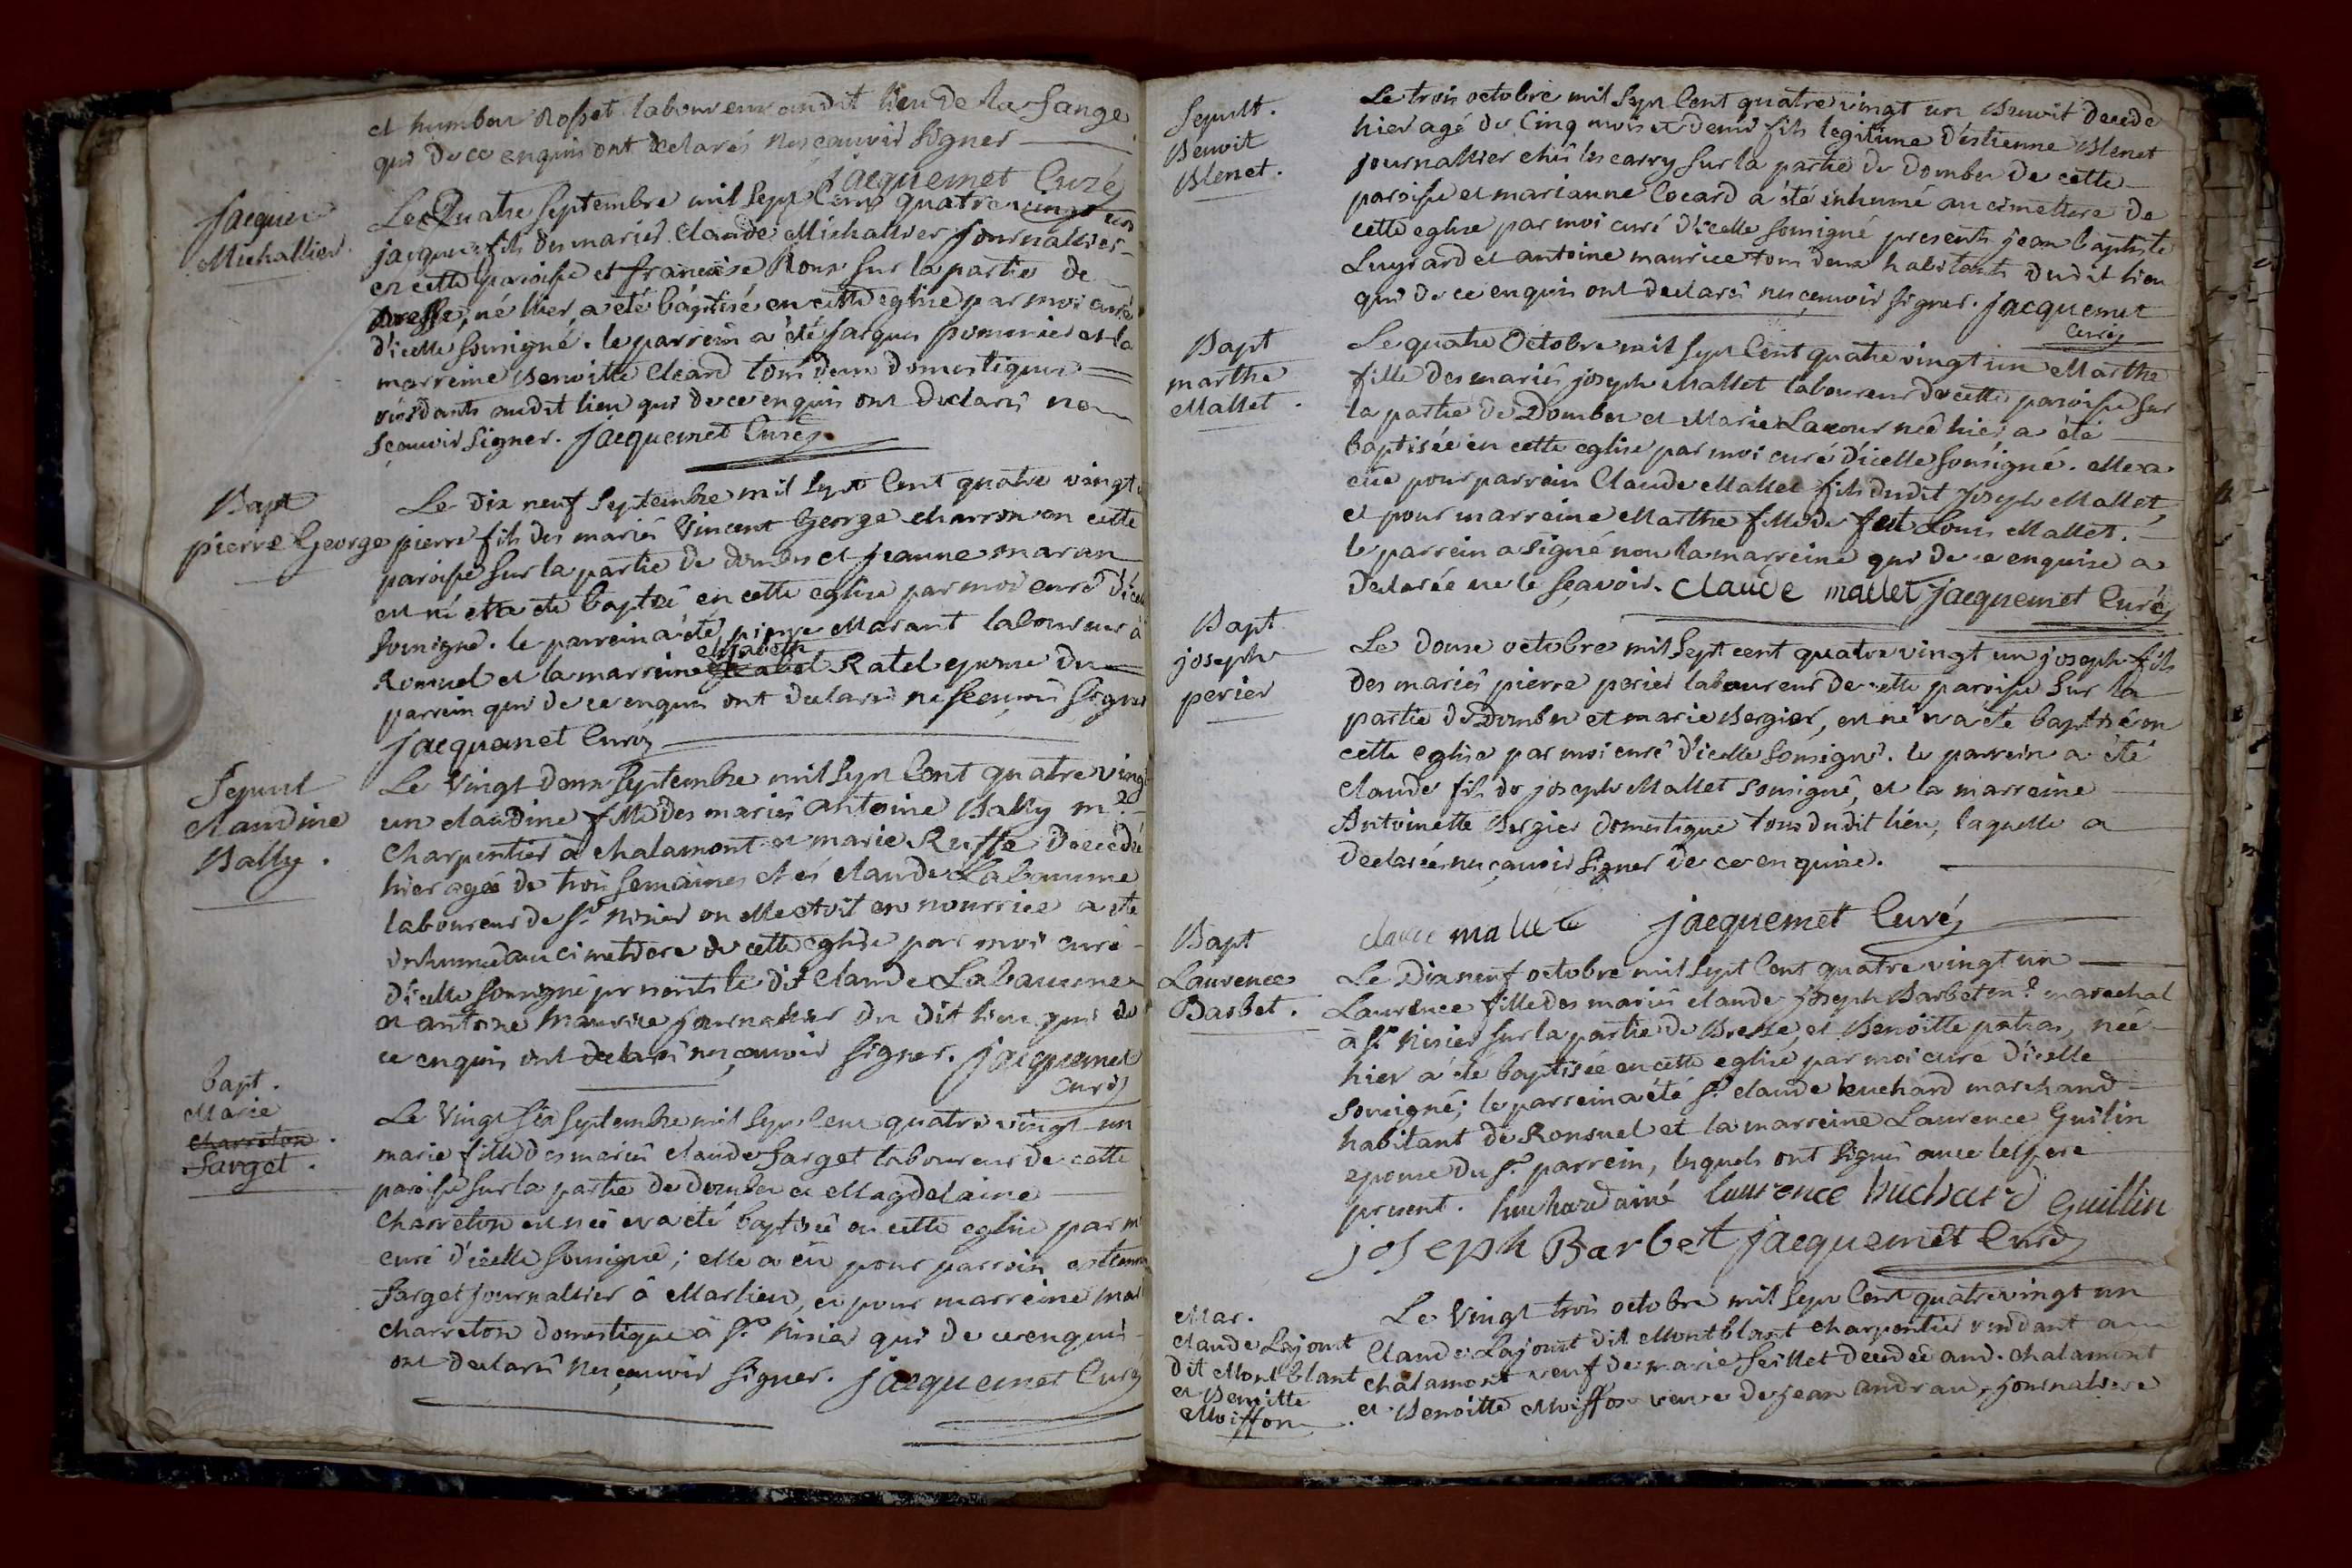 et humber Rosset laboureur audit lieu de la Fange
qui de ce enquis ont declarés ne sçauvoir signer
jacquemet Curé
jacques
Michallier.
Le Quatre septembre mil sept Cent quatre vingt un
jacques fils des mariés Claude Michallier journallier
en cette paroisse et françoise Roux sur la partie de
Bresse, né hier, a été baptisé en cette eglise par moi curé
d'icelle sousigné. le parrein a été jacques pommier et la
marreine Benoitte Cleard tous deux domestiques
residants audit lieu qui de ce enquis ont declarés ne
sçauvoir signer. jacquemet Curé
Bapt
pierre George
Le dix neuf septembre mil sept Cent quatre vingt
pierre fils des mariés Vincent George charron en cette
paroisse sur la partie de dombes et jeanne maran
est né et a été baptisé en cette eglise par moi curé d'icelle
sousigné. le parrein a été pierre Marant laboureur à
elizabeth
Ronsuel et la marreine Ratel epouse du
parrein qui de ce enquis ont declarés ne sçauvoir signer
jacquemet Curé
Sepult
claudine
Bally.
Le Vingt deux septembre mil sept Cent quatre vingt
un claudine fille des mariés antoine Bally m.e
charpentier à chalamont et marie Ruffe decedée
hier agée de trois semaines chés claude Labaume
laboureur de st. nisier ou elle etoit en nourrice a été
inhumée au cimetiere de cette eglise par moi curé
d'icelle sousigné presents le dit Claude Labaume
et antoine Maurice journalier du dit lieu qui de
ce enquis ont declarés ne sçauvoir signer. jacquemet
Curé
bapt.
Marie
Charreton.
Farget.
Le Vingt six septembre mil sept cent quatre vingt un
marie fille des mariés claude Farget laboureur de cette
paroisse sur la partie de dombes et Magdelaine
Charreton est née et a été baptisée en cette eglise par m
curé d'icelle sousigné; elle a eü pour parrein
Farget journallier à Marlieu, et pour marreine mar
charreton domestique à st. Nisier qui de ce enquis
ont declarés ne sçauvoir signer. jacquemet Curé
Sepult.
Benoit
Blenet.
Le trois octobre mil sept Cent quatre vingt un Benoit decedé
hier agé de Cinq mois et demi fils legitime d'estienne Blenet
journallier chés les carry sur la partie de Dombes de cette
paroisse et marianne Cocard a été inhumé au cimetiere de
cette eglise par moi curé d'icelle sousigné presents jean baptiste
Luyrard et antoine maurice tous deux habitants dudit lieu
qui de ce enquis ont declarés ne sçauvoir signer. jacquemet
Curé
Bapt
marthe
Mallet.
Le quatre Octobre mil sept Cent quatre vingt un Marthe
fille des mariés joseph Mallet laboureur de cette paroisse sur
la partie de Dombes et Marie Lacour née hier a été
baptisée en cette eglise par moi curé d'icelle sousigné. elle a
eüe pour parrein Claude Mallet fils dudit joseph Mallet,
et pour marreine Marthe fille de feut Louis Mallet.
le parrein a signé non la marreine qui de ce enquise a
declarée ne le sçavoir. Claude mallet jacquemet Curé
Bapt
joseph
perier
Le douse octobre mil sept cent quatre vingt un joseph fils
des mariés pierre perier laboureur de cette paroisse sur la
partie de Dombes et marie Bergier, est né et a été baptisé en
cette eglise par moi curé d'icelle sousigné. le parrein a été
claude fils de joseph Mallet sousigné, et la marreine
Antoinette Bergier domestique tous dudit lieu, laquelle a
declarée ne sçauvoir signer de ce enquise.
claude mallet jacquemet Curé
Bapt
Laurence
Barbet.
Le Dix neuf octobre mil sept Cent quatre vingt un
Laurence fille des mariés claude joseph Barbet m.e marechal
à st. Nisier sur la partie de Bresse, et Benoitte patras, née
hier a été baptisée en cette eglise par moi curé d'icelle
sousigné; le parrein a été sr. claude huchard marchand
habitant de Ronsuel et la marreine Laurence Guilin
epouse du sr. parrein, lesquels ont signés avec le pere
present. huchard ainé laurence huchard Guillin
joseph Barbet jacquemet Curé
Mar.
Claude Lajout
dit Mont blant
et Benoitte
Moiffon.
Le Vingt trois octobre mil sept Cent quatre vingt un
Claude Lajout dit Mont blant charpentier residant a
chalamont veuf de marie Seillet decedée aud. chalamont
et Benoitte Moiffon veuve de jean andrau, journaliere